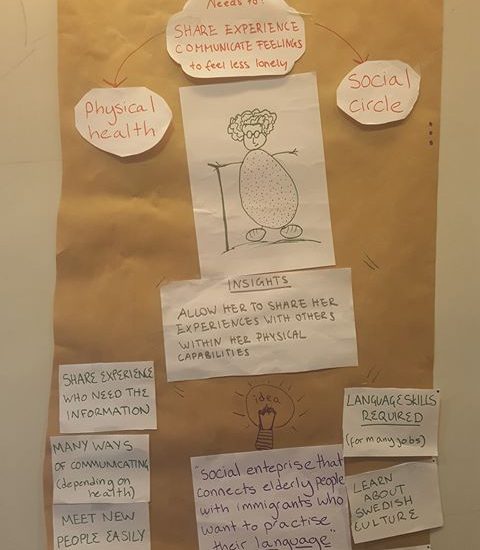 Needs to:
SHARE EXPERIENCE
COMMUNICATE FEELINGS
to feel less lonely
physical
health
Social
CIRCLE
INSIGHTS
ALLOW HER TO SHARE HER
EXPERIENCES WITH OTHERS
WITHIN HER PHYSICAL
CAPABILITIES
idea
SHARE EXPERIENCE
WHO NEED THE
INFORMATION
MANY WAYS
OF COMMUNICATING
(depending on
health)
MEET NEW
PEOPLE EASILY
"social enteprise that
connects elderly people
with immigrants who
want to practise
their language
LANGUAGE SKILLS
REQUIRED
(for many jobs)
LEARN
ABOUT
SWEDISH
CULTURE